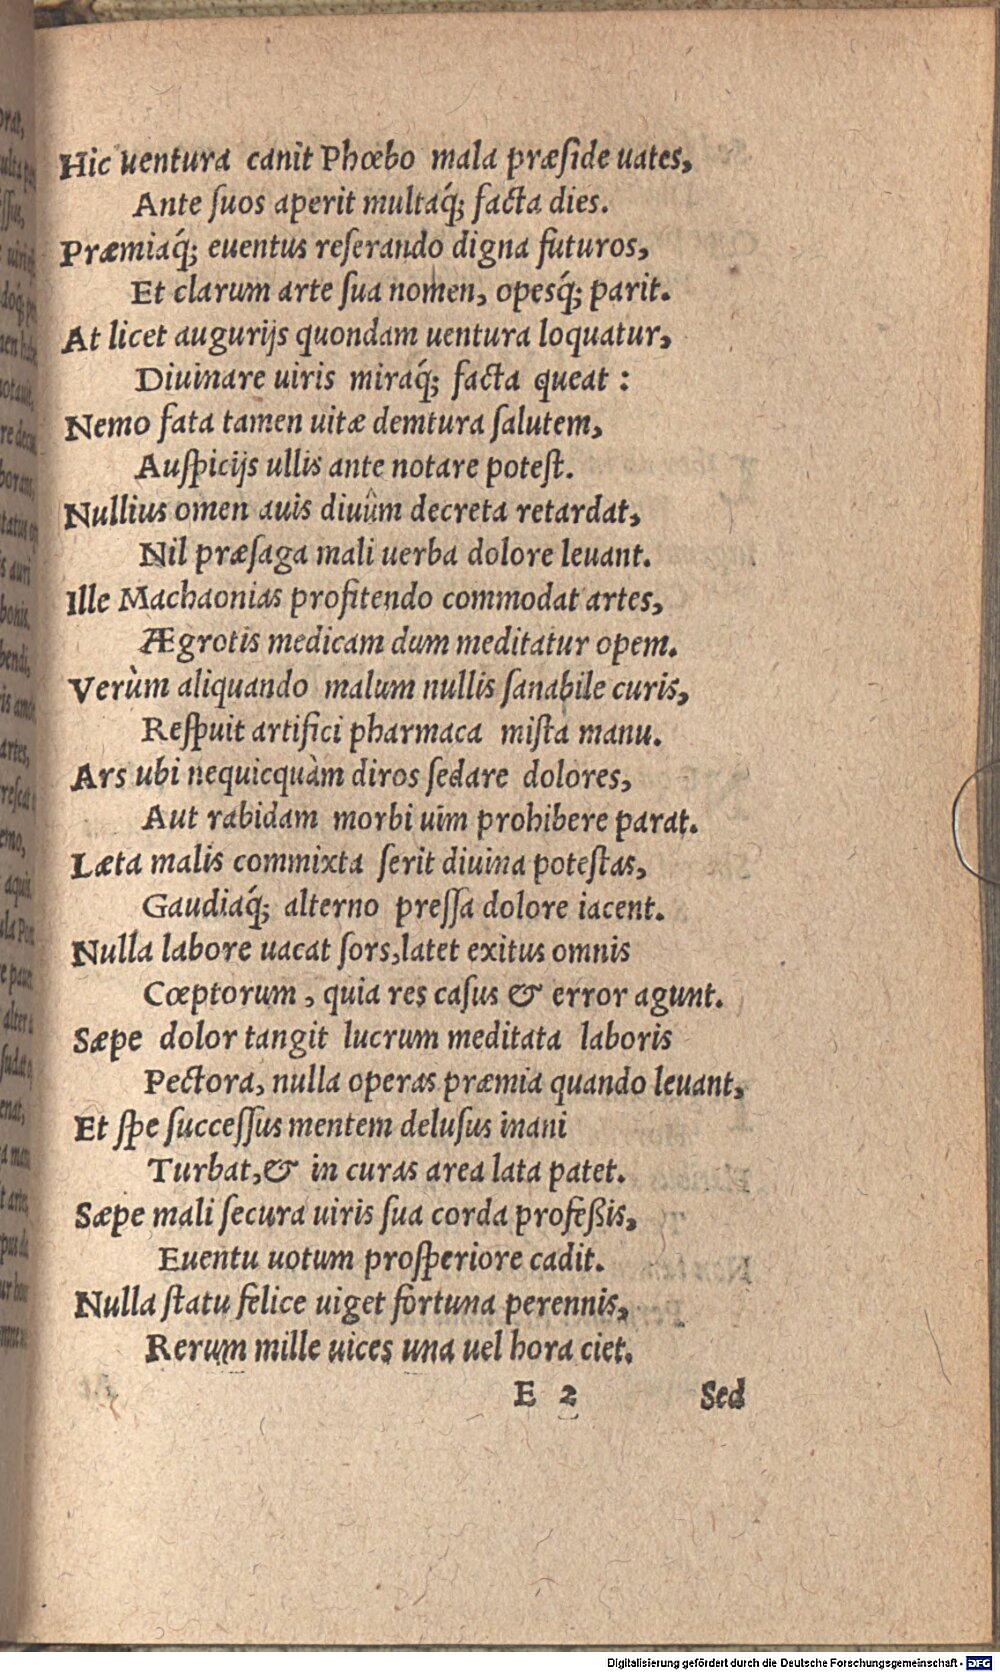 Hic uentura canit Phœbo mala præſide uates,
Ante ſuos aperit multaq́; facta dies.
Præmiaq́; euentus reſerando digna futuros,
Et clarum arte ſua nomen, opesq́; parit.
At licet augurijs quondam uentura loquatur,
Diuinare uiris miraq́; facta queat :
Nemo fata tamen uitæ demtura ſalutem,
Auſpicijs ullis ante notare poteſt.
Nullius omen auis diuûm decreta retardat,
Nil præſaga mali uerba dolore leuant.
Ille Machaonias profitendo commodat artes,
Ægrotis medicam dum meditatur opem.
Verùm aliquando malum nullis ſanabile curis,
Reſpuit artifici pharmaca miſta manu.
Ars ubi nequicquàm diros ſedare dolores,
Aut rabidam morbi uim prohibere parat.
Læta malis commixta ſerit diuina poteſtas,
Gaudiaq́; alterno preſſa dolore iacent.
Nulla labore uacat ſors, latet exitus omnis
Cœptorum, quia res caſus & error agunt.
Sæpe dolor tangit lucrum meditata laboris
Pectora, nulla operas præmia quando leuant,
Et ſpe ſucceſſus mentem deluſus inani
Turbat, & in curas area lata patet.
Sæpe mali ſecura uiris ſua corda profeßis,
Euentu uotum proſperiore cadit.
Nulla ſtatu felice uiget fortuna perennis,
Rerum mille uices una uel hora ciet.
E 2 Sed
Digitalisierung gefördert durch die Deutsche Forschungsgemeinschaft - DFG